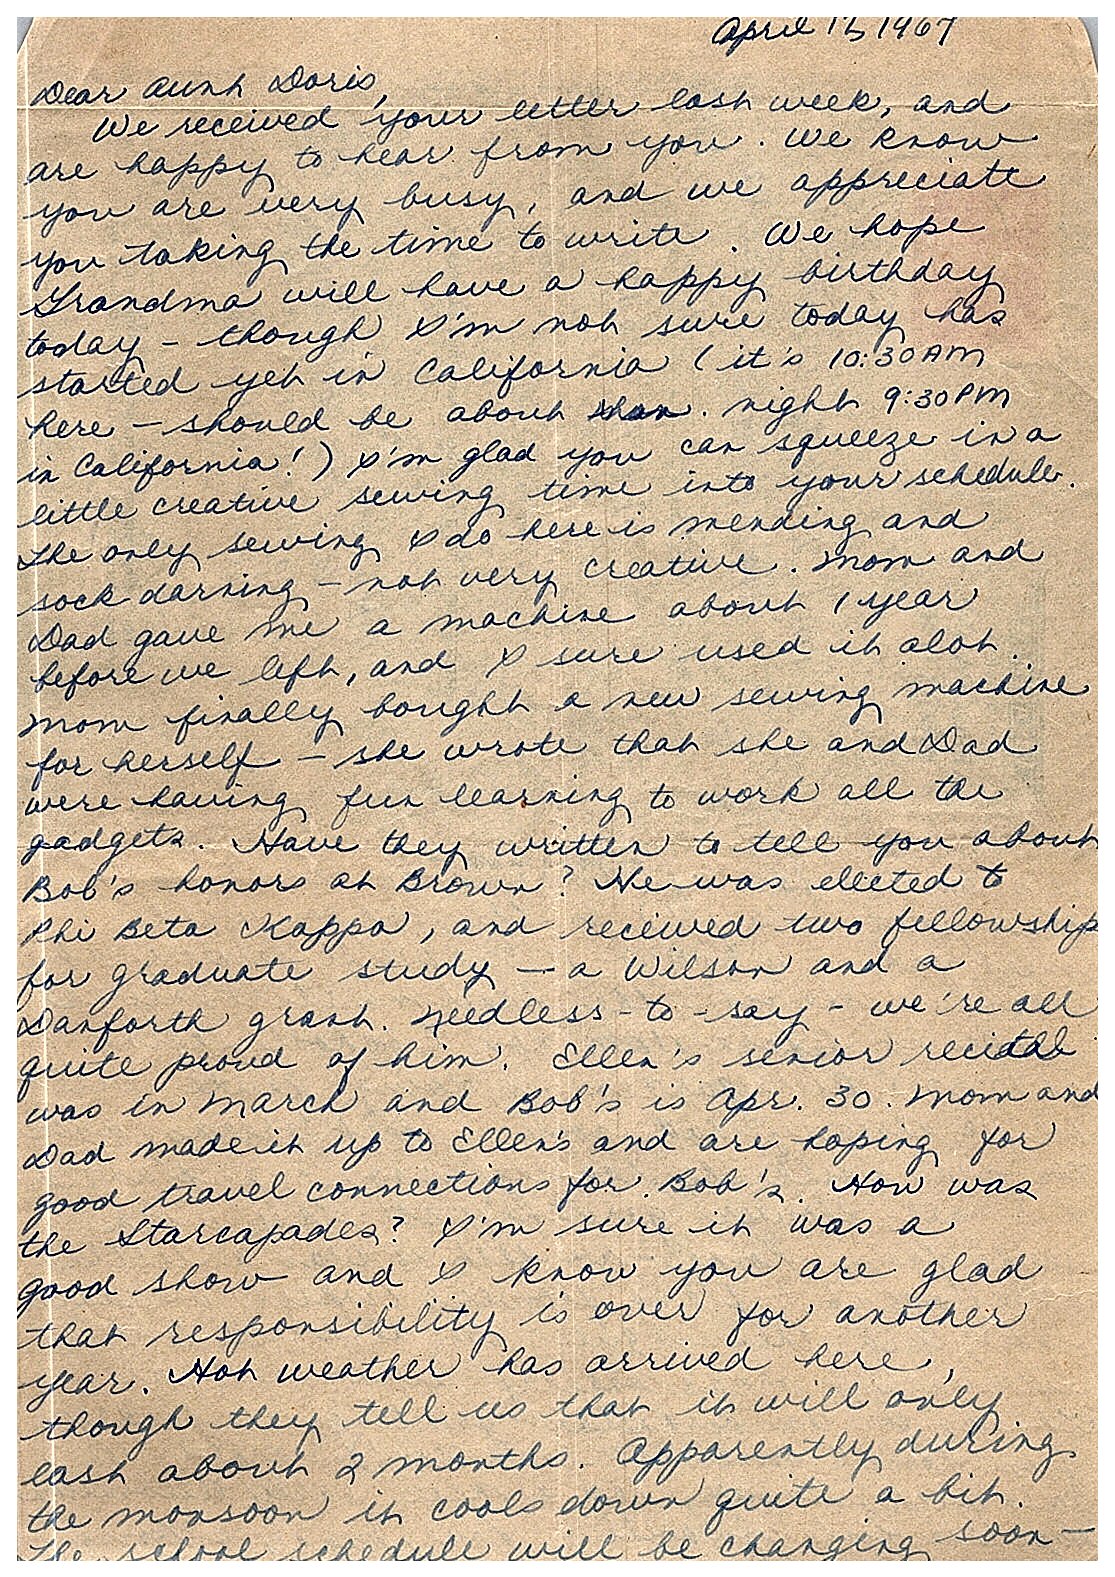 April 1, 1967
Dear Aunt Doris,
We received your letter last week, and
are happy to hear from you. We know
you are very busy, and we appreciate
you taking the time to write. We hope
Grandma will have a happy birthday
today - though I'm not sure today has
started yet in California (it's 10:30 AM
here - should be about . night 9:30 PM
in California!) I'm glad you can squeeze in a
little creative sewing time into your schedule.
The only sewing I do here is mending and
sock darning - not very creative. Mom and
Dad gave me a machine about 1 year
before we left, and I sure used it alot.
Mom finally bought a new sewing machine
for herself - she wrote that she and Dad
were having fun learning to work all the
gadgets. Have they written to tell you about
Bob's honors at Brown? He was elected to
Phi Beta Kappa, and received two fellowship
for graduate study - a Wilson and a
Danforth grant. Needless-to-say - we're all
quite proud of him. Ellen's senior recital
was in March and Bob's is Apr. 30. Mom and
Dad made it up to Ellen's and are hoping for
good travel connections for Bob's. How was
the Starcapades? I'm sure it was a
good show and I know you are glad
that responsibility is over for another
year. Hot weather has arrived here,
though they tell us that it will only
last about 2 months. Apparently during
the monsoon it cools down quite a bit.
The school schedule will be changing soon -